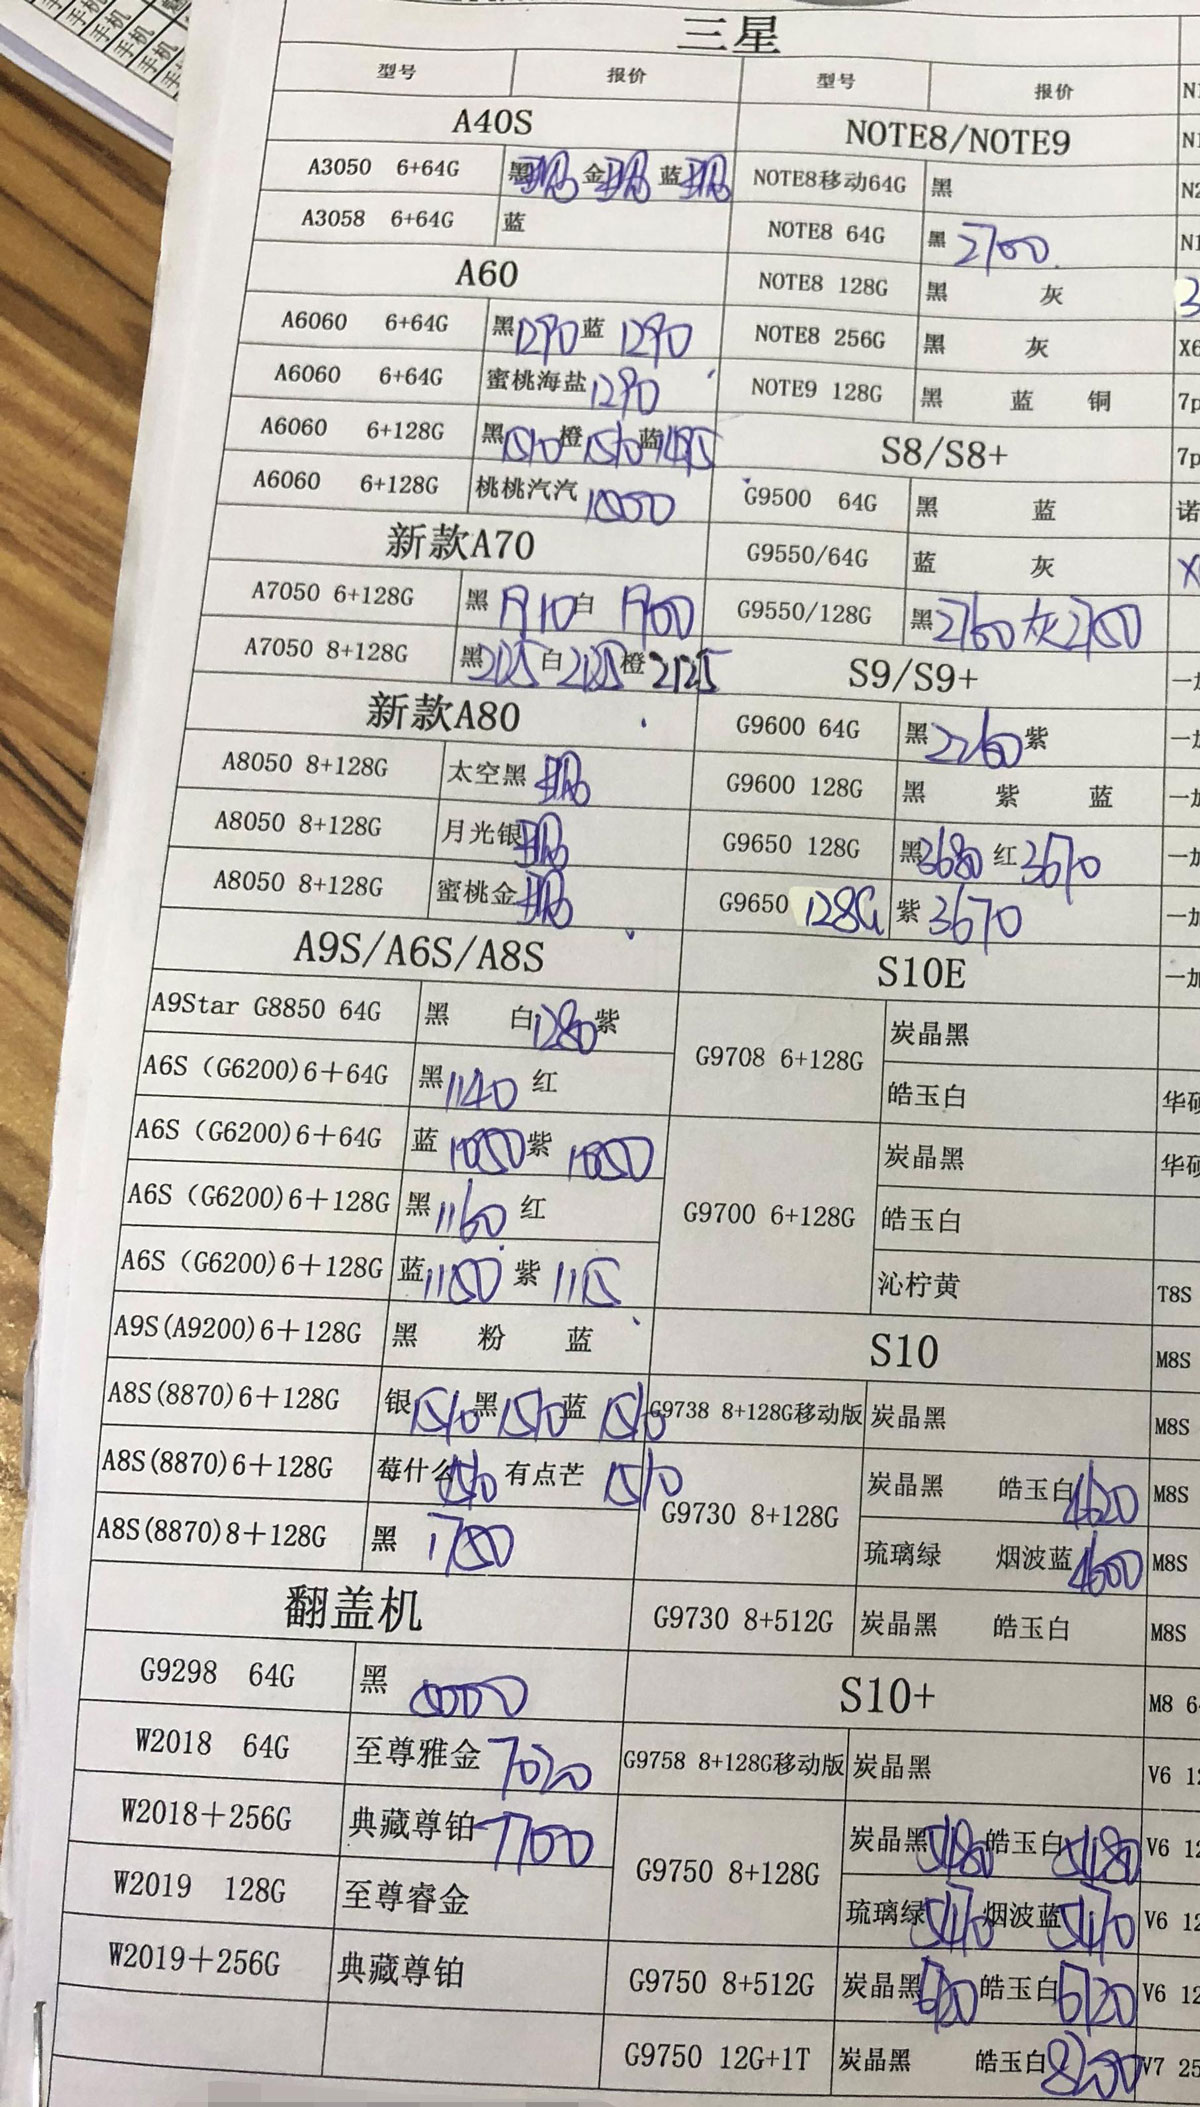 三星
型号 报价 型号 报价
A40S
A3050 6+64G 黑 金 蓝
A3058 6+64G 蓝
A60
A6060 6+64G 黑1290 蓝 1290
A6060 6+64G 蜜桃海盐 1290
A6060 6+128G 黑1510 橙1510 蓝1495
A6060 6+128G 桃桃汽汽
新款A70
A7050 6+128G 黑 1910 白 1900
A7050 8+128G 黑2125 白2125 橙2125
新款A80
A8050 8+128G 太空黑
A8050 8+128G 月光银
A8050 8+128G 蜜桃金
A9S/A6S/A8S
A9Star G8850 64G 黑 白1280 紫
A6S（G6200)6＋64G 黑1140 红
A6S（G6200)6＋64G 蓝 1050 紫 1050
A6S（G6200)6＋128G 黑1160 红
A6S（G6200)6＋128G 蓝1150 紫 115
A9S(A9200)6＋128G 黑 粉 蓝
A8S(8870)6＋128G 银1510 黑1510 蓝 1510
A8S(8870)6＋128G 莓什么1510 有点芒 1510
A8S(8870)8＋128G 黑 1750
翻盖机
G9298 64G 黑
W2018 64G 至尊雅金 7020
W2018＋256G 典藏尊铂 7700
W2019 128G 至尊睿金
W2019＋256G 典藏尊铂
NOTE8/NOTE9
NOTE8移动64G 黑
NOTE8 64G 黑 2700
NOTE8 128G 黑 灰
NOTE8 256G 黑 灰
NOTE9 128G 黑 蓝 铜
S8/S8+
G9500 64G 黑 蓝
G9550/64G 蓝 灰
G9550/128G 黑2760 灰2750
S9/S9+
G9600 64G 黑2260 紫
G9600 128G 黑 紫 蓝
G9650 128G 黑3680 红3670
G9650 128G 紫 3670
S10E
G9708 6+128G 炭晶黑
皓玉白
G9700 6+128G 炭晶黑
皓玉白
沁柠黄
S10
G9738 8+128G移动版 炭晶黑
G9730 8+128G 炭晶黑 皓玉白4620
琉璃绿 烟波蓝4600
G9730 8+512G 炭晶黑 皓玉白
S10+
G9758 8+128G移动版 炭晶黑
G9750 8+128G 炭晶黑5480 皓玉白5480
琉璃绿5470 烟波蓝5470
G9750 8+512G 炭晶黑 皓玉白6720
G9750 12G+1T 炭晶黑 皓玉白8200
N1
N1
N2
N1
3
X6
7p
7p
诺
X
一加
一加
一加
一加
一加
一加
华硕
华硕
T8S
M8S
M8S
M8S
M8S
M8S
M8 6
V6 12
V6 12
V6 12
V6 12
V7 25
手机
手机
手机
手机